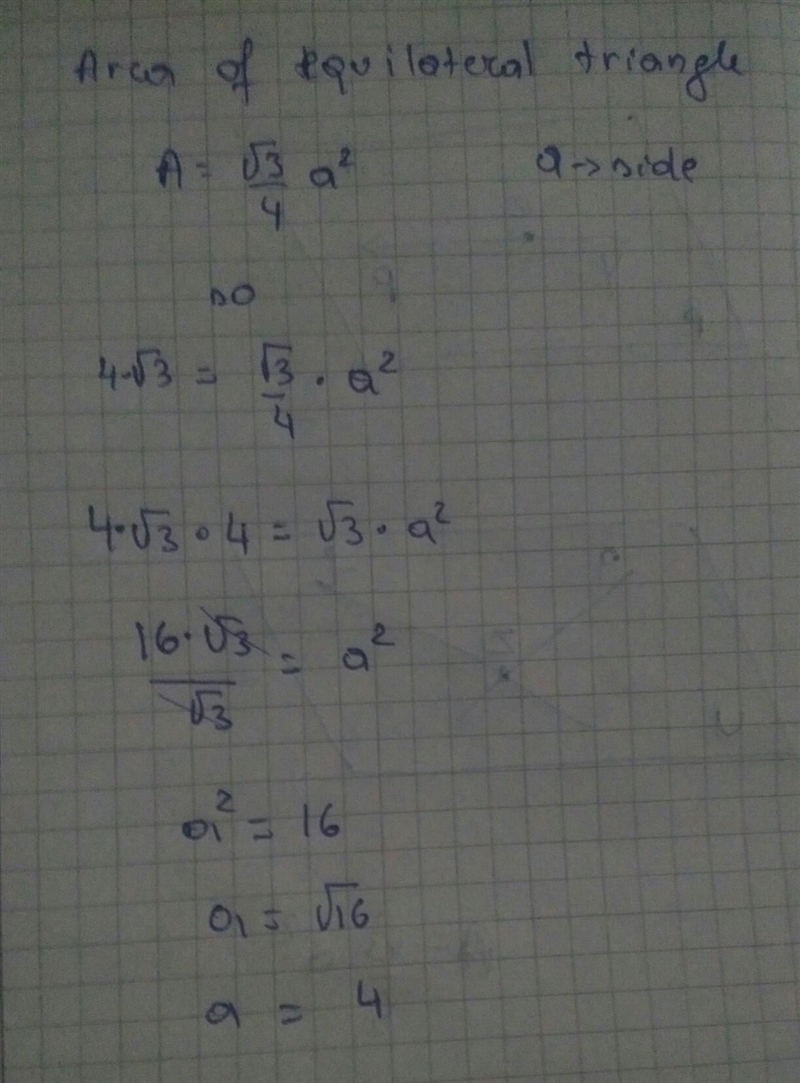 Area of equilateral triangle
A = √3/4 a² a → side
so
4·√3 = √3/4 · a²
4·√3·4 = √3·a²
16·√3/√3 = a²
a² = 16
a = √16
a = 4